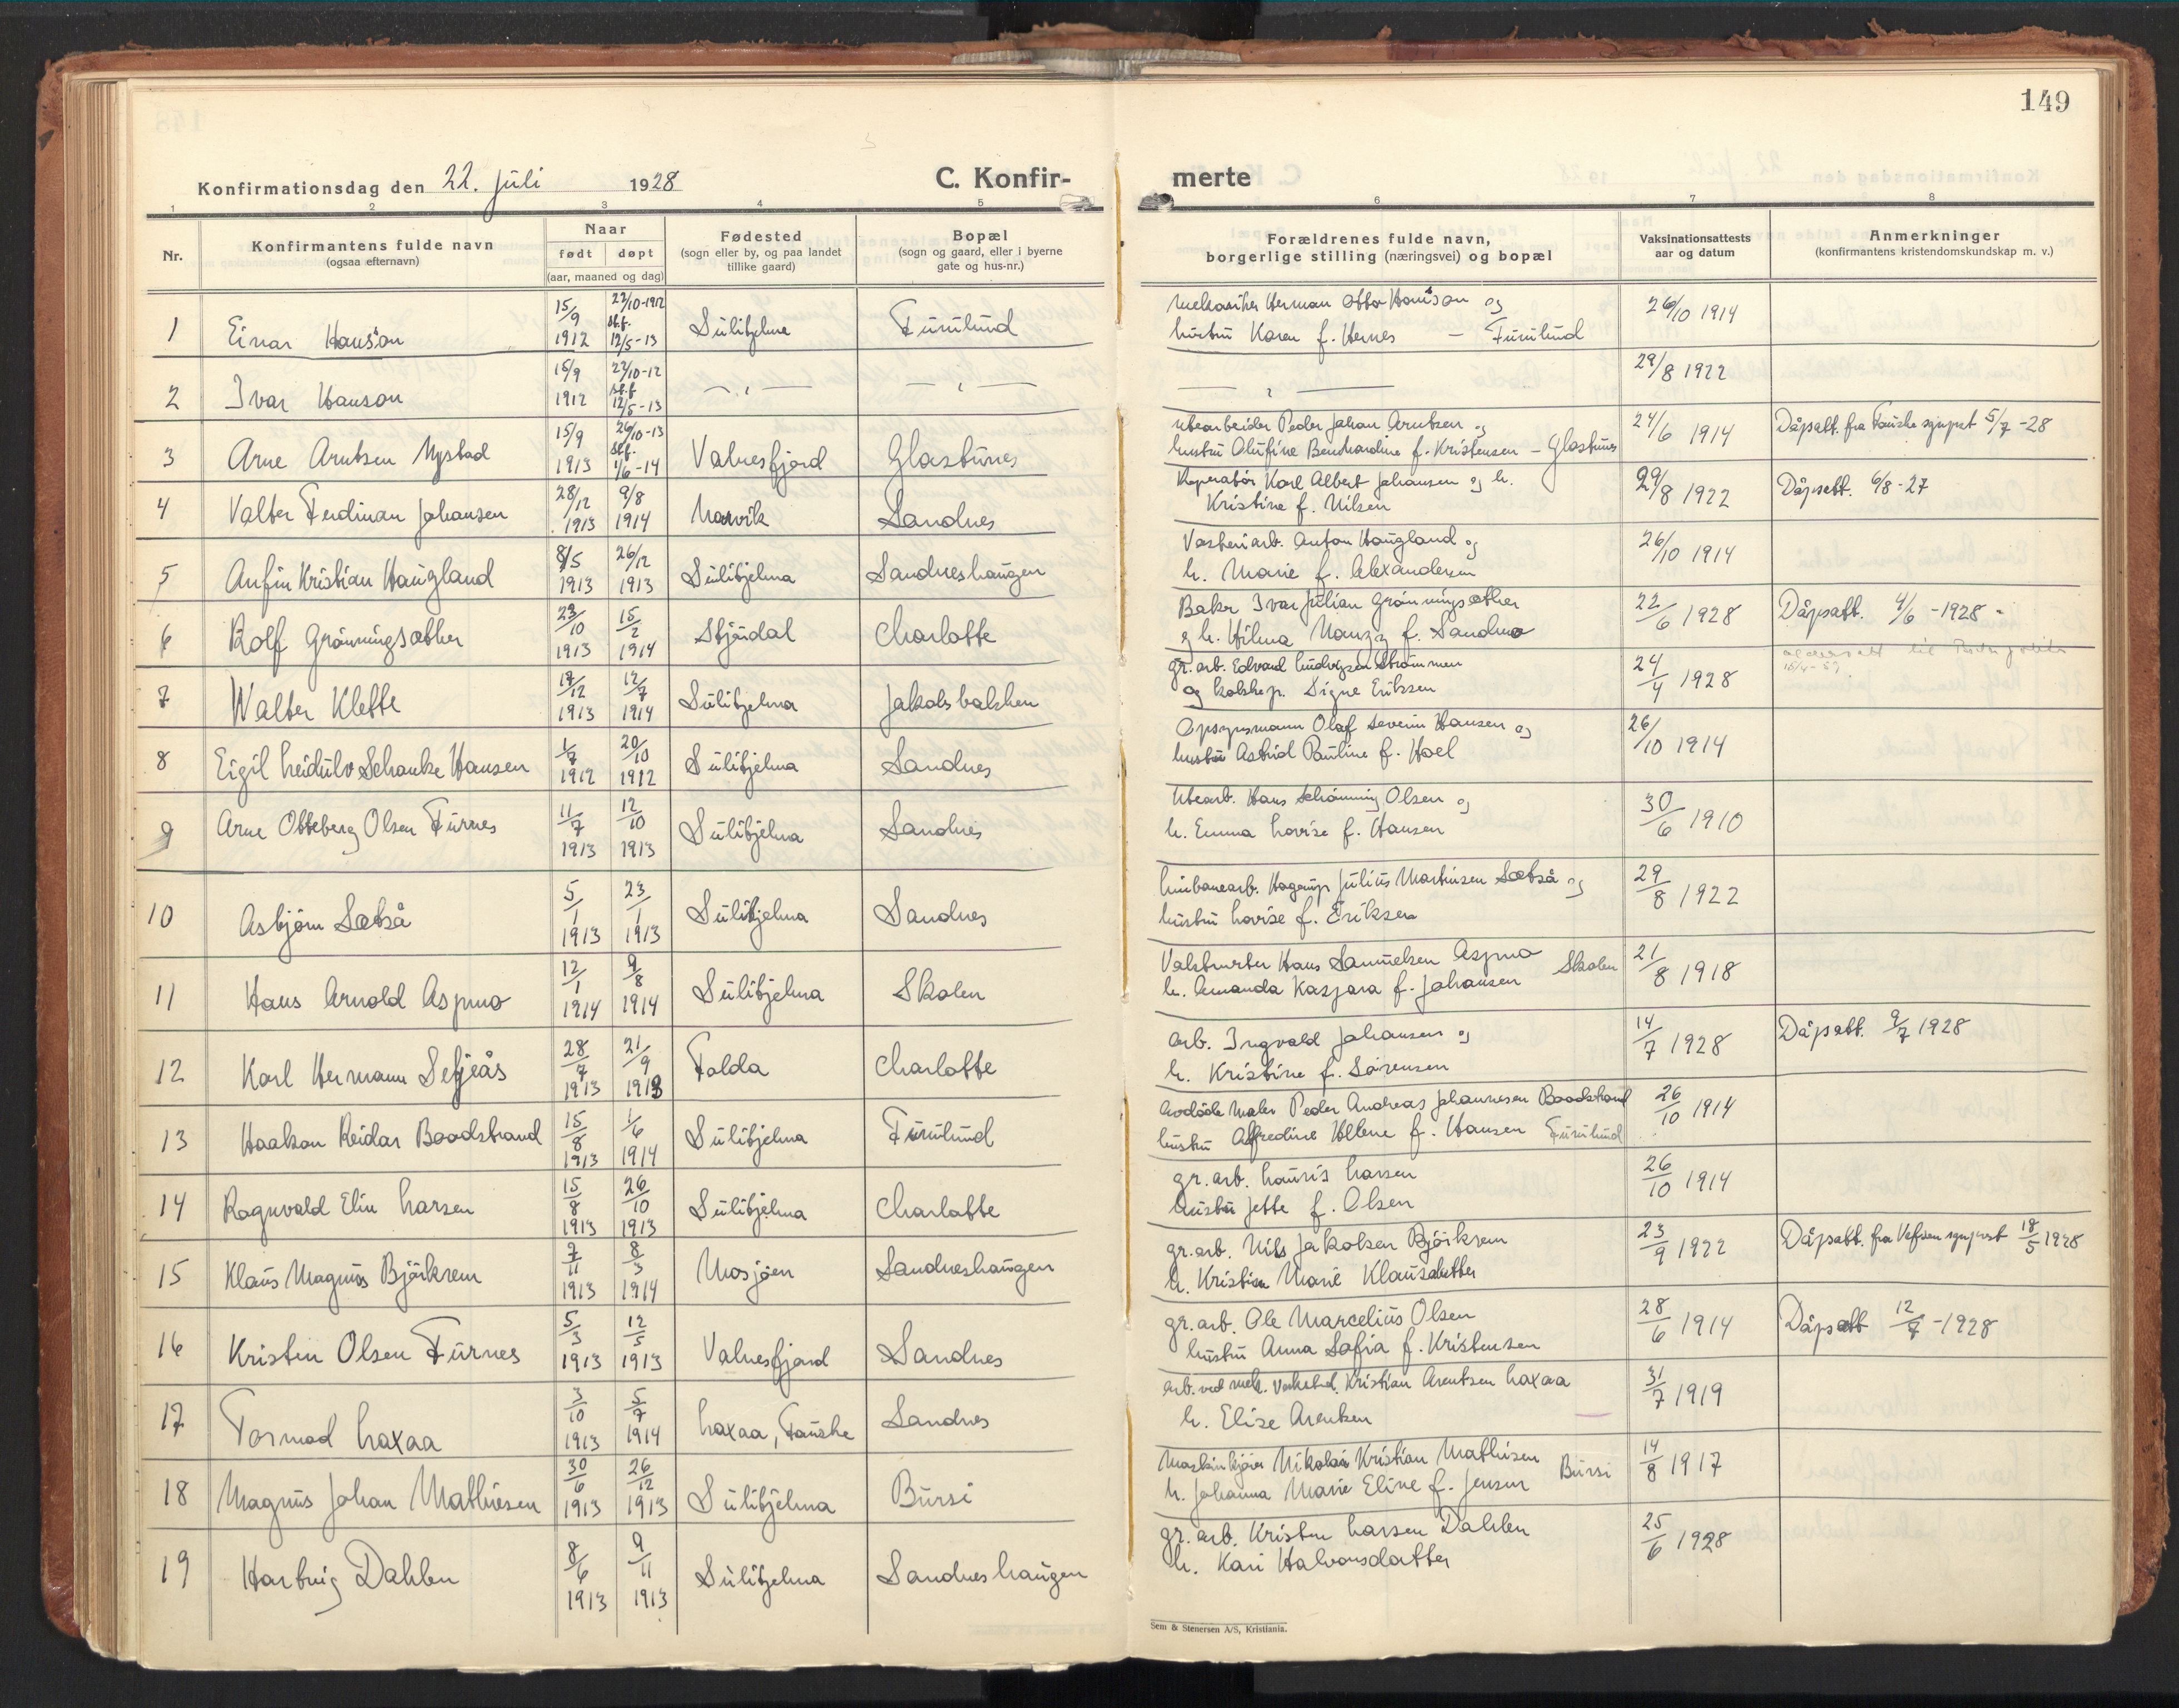 149
Konfirmationsdag den 22. juli 1928
C. Konfir-
merte
1 2 3 4 5 6 7 8
Nr.
Konfirmantens fulde navn
(ogsaa efternavn)
Naar
født døpt
(aar, maaned og dag)
Fødested
(sogn eller by, og paa landet
tillike gaard)
Bopæl
(sogn og gaard, eller i byerne
gate og hus-nr.)
Forældrenes fulde navn,
borgerlige stilling (næringsvei) og bopæl
Vaksinationsattests
aar og datum
Anmerkninger
(konfirmantens kristendomskundskap m. v.)
1 Einar Hanson 15/9 1912 27/10-1912 st.f. 12/5-13 Sulitjelma Furulund
Mekaniker Herman Otto Hanson og
hustru Karen f. Hernes — Furulund
26/10 1914
2 Ivar Hanson 15/9 1912 27/10-12 st.f. 12/5-13 — " — — " —
— " —
29/8 1922
3 Arne Arntsen Nystad 15/9 1913 26/10-13 st.f. 1/6-14 Valnesfjord Glastunes
Utearbeider Peder Johan Arntsen og
hustru Olufine Bernhardine f. Kristensen – Glastunes
24/6 1914
Dåpsatt. fra Fauske sognepr. 5/7-28
4 Valter Ferdinan Johansen 28/12 1913 9/8 1914 Narvik Sandnes
Reparatør Karl Albert Johansen og h.
Kristine f. Nilsen
29/8 1922
Dåpsatt. 6/8-27
5 Anfin Kristian Haugland 8/5 1913 26/12 1913 Sulitjelma Sandneshaugen
Vaskeriarb. Anton Haugland og
h. Marie f. Alexandersen
26/10 1914
6 Rolf Grönningsæther 23/10 1913 15/2 1914 Stjördal Charlotte
Baker Ivar Julian Grönningsæther
og h. Hilma Nanzy f. Sandmo
22/6 1928
Dåpsatt. 4/6-1928
7 Walter Klette 17/12 1913 12/7 1914 Sulitjelma Jakobsbakken
gr.arb. Edvard Ludvigsen Strömmen
og kokkep. Signe Eriksen
24/4 1928
15/4-59
8 Eigil Leidulv Schanke Hansen 1/7 1912 20/10 1912 Sulitjelma Sandnes
Opsynsmann Olaf Severin Hansen og
hustru Astrid Pauline f. Hoel
26/10 1914
9 Arne Otteberg Olsen Furnes 11/7 1913 12/10 1913 Sulitjelma Sandnes
Utearb. Hans Schönning Olsen og
h. Emma Lovise f. Hansen
30/6 1910
10 Asbjörn Sætså 5/1 1913 23/1 1913 Sulitjelma Sandnes
Linbanearb. Hagerup Julius Martinsen Sætså og
hustru Lovise f. Eriksen
29/8 1922
11 Hans Arnold Aspmo 12/1 1914 9/8 1914 Sulitjelma Skolen
Vaktmester Hans Samuelsen Aspmo
h. Amanda Kaspara f. Johansen Skolen
21/8 1918
12 Karl Hermann Setjeås 28/7 1913 21/9 1913 Folda Charlotte
Arb. Ingvald Johansen og
h. Kristine f. Sörensen
14/7 1928
Dåpsatt. 9/7 1928
13 Haakon Reidar Baadstrand 15/8 1913 1/6 1914 Sulitjelma Furulund
Avdöde maler Peder Andreas Johannesen Baadstrand
hustru Alfredine Helene f. Hansen Furulund
26/10 1914
14 Ragnvald Elin Larsen 15/8 1913 26/10 1913 Sulitjelma Charlotte
gr.arb. Lauris Larsen
hustru Jette f. Olsen
26/10 1914
15 Klaus Magnus Björkrem 7/11 1913 8/3 1914 Mosjöen Sandneshaugen
gr.arb. Nils Jakobsen Björkrem
h. Kristine Marie Klausdatter
23/9 1922
Dåpsatt. fra Vefsen sognepr. 18/5 1928
16 Kristen Olsen Furnes 5/3 1913 12/5 1913 Valnesfjord Sandnes
gr.arb. Ole Marcelius Olsen
hustru Anna Sofia f. Kristensen
28/6 1914
Dåpsatt 12/7-1928
17 Tormod Laxaa 3/10 1913 5/7 1914 Laxaa, Fauske Sandnes
Arb. ved mek. Verksted. Kristian Arentsen Laxaa
h. Elise Arentsen
31/7 1919
18 Magnus Johan Mathiesen 30/6 1913 26/12 1913 Sulitjelma Bursi
Maskinkjører Nikolai Kristian Mathisen
h. Johanna Marie Eline f. Jensen Bursi
14/8 1917
19 Hartvig Dahlen 8/6 1913 9/11 1913 Sulitjelma Sandneshaugen
gr.arb. Kristen Larsen Dahlen
h. Kari Halvorsdatter
25/6 1928
Sem & Stenersen A/S, Kristiania.